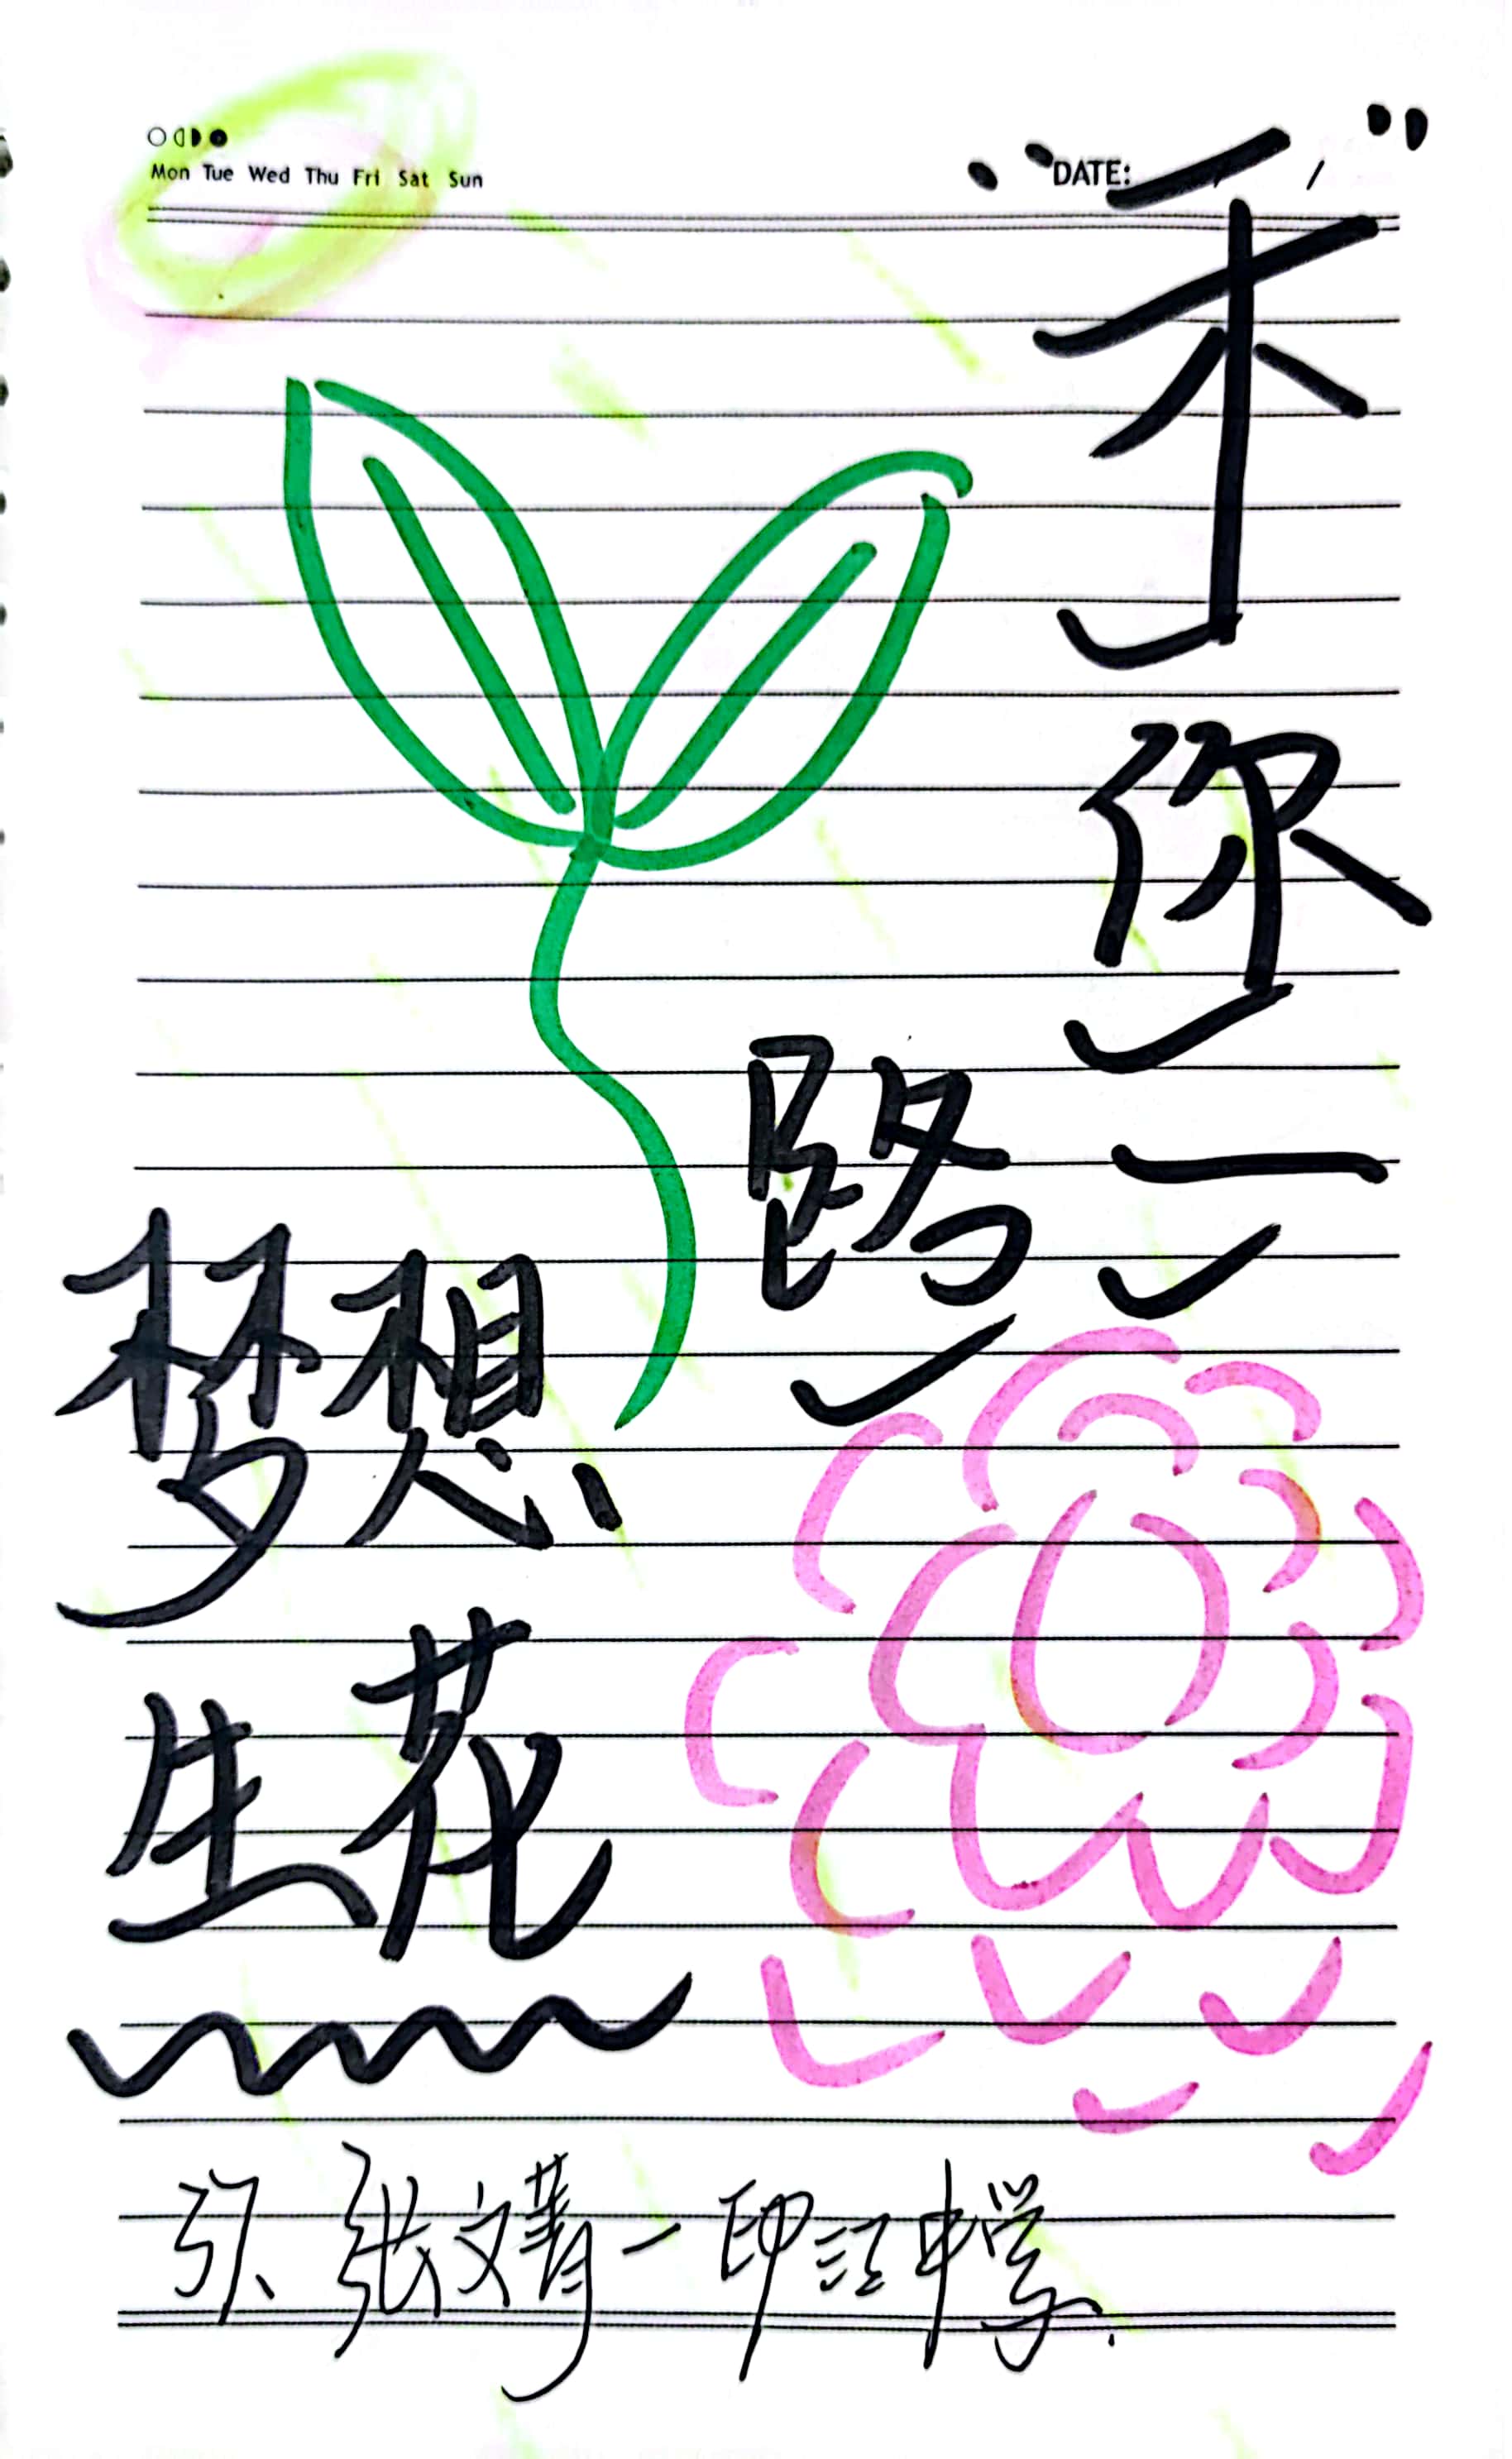 Mon Tue Wed Thu Fri Sat Sun
DATE: / /
“禾”你一路
梦想
生花
引、张文菁—印江中学.